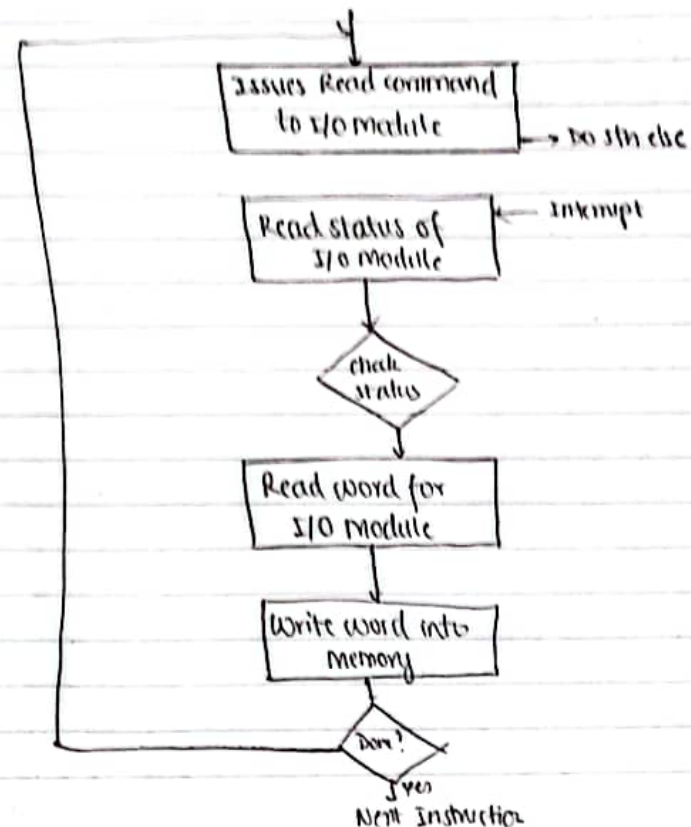 Issues Read command
to I/O module
→ Do sth else
Read status of
I/O Module
← Interrupt
Check
status
Read word for
I/O Module
Write word into
memory
Done?
Yes
Next Instruction